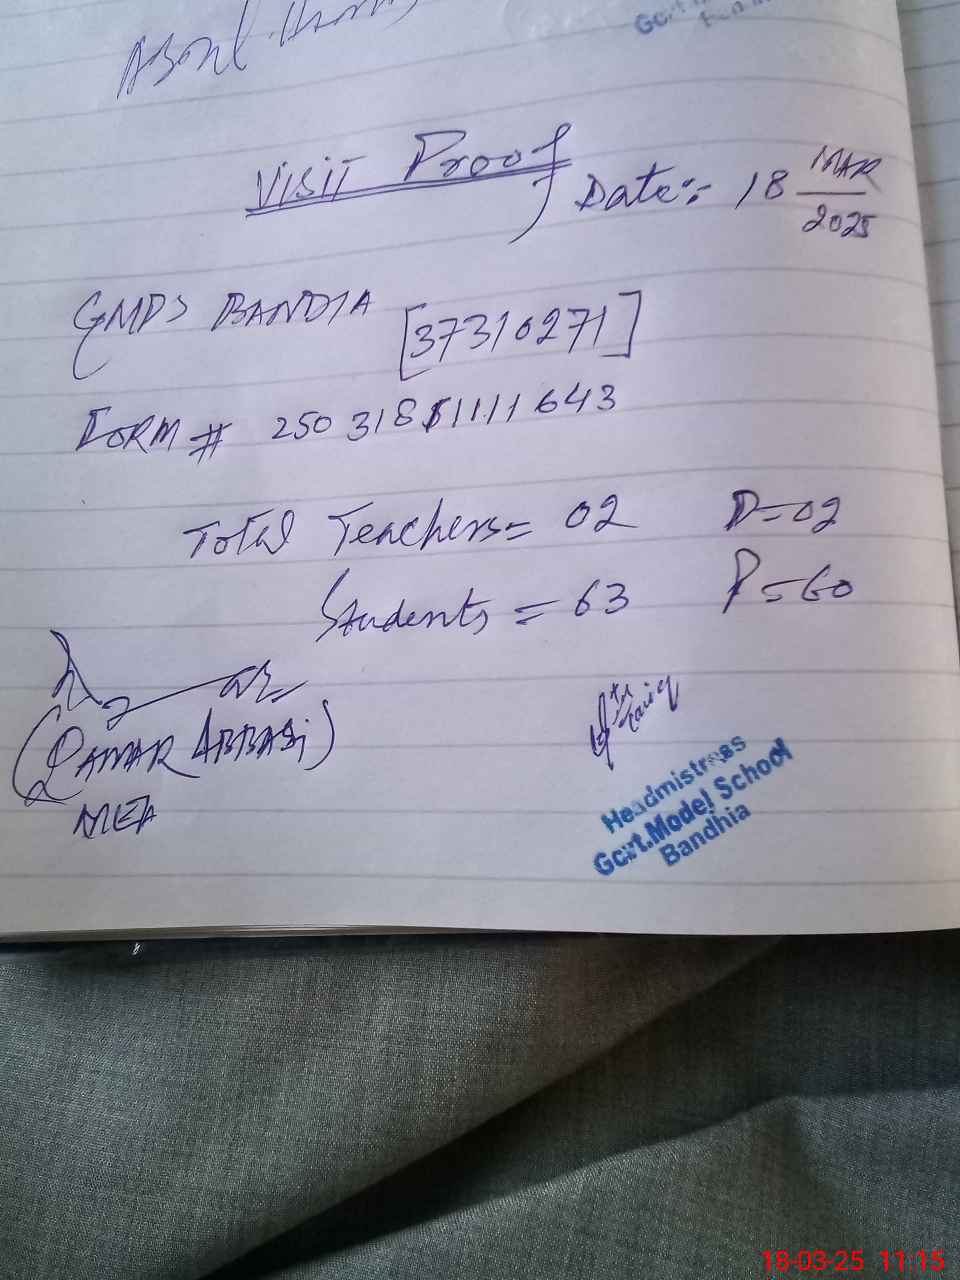 Visit Proof
Date:- 18 MAR 2025
GMPS BANDIA [37310271]
FORM # 250318111643
Total Teachers = 02 P=02
Students = 63 P=60
(QAMAR ABBASi)
MEA
Headmistress
Govt.Model School
Bandhia
18-03-25 11:15